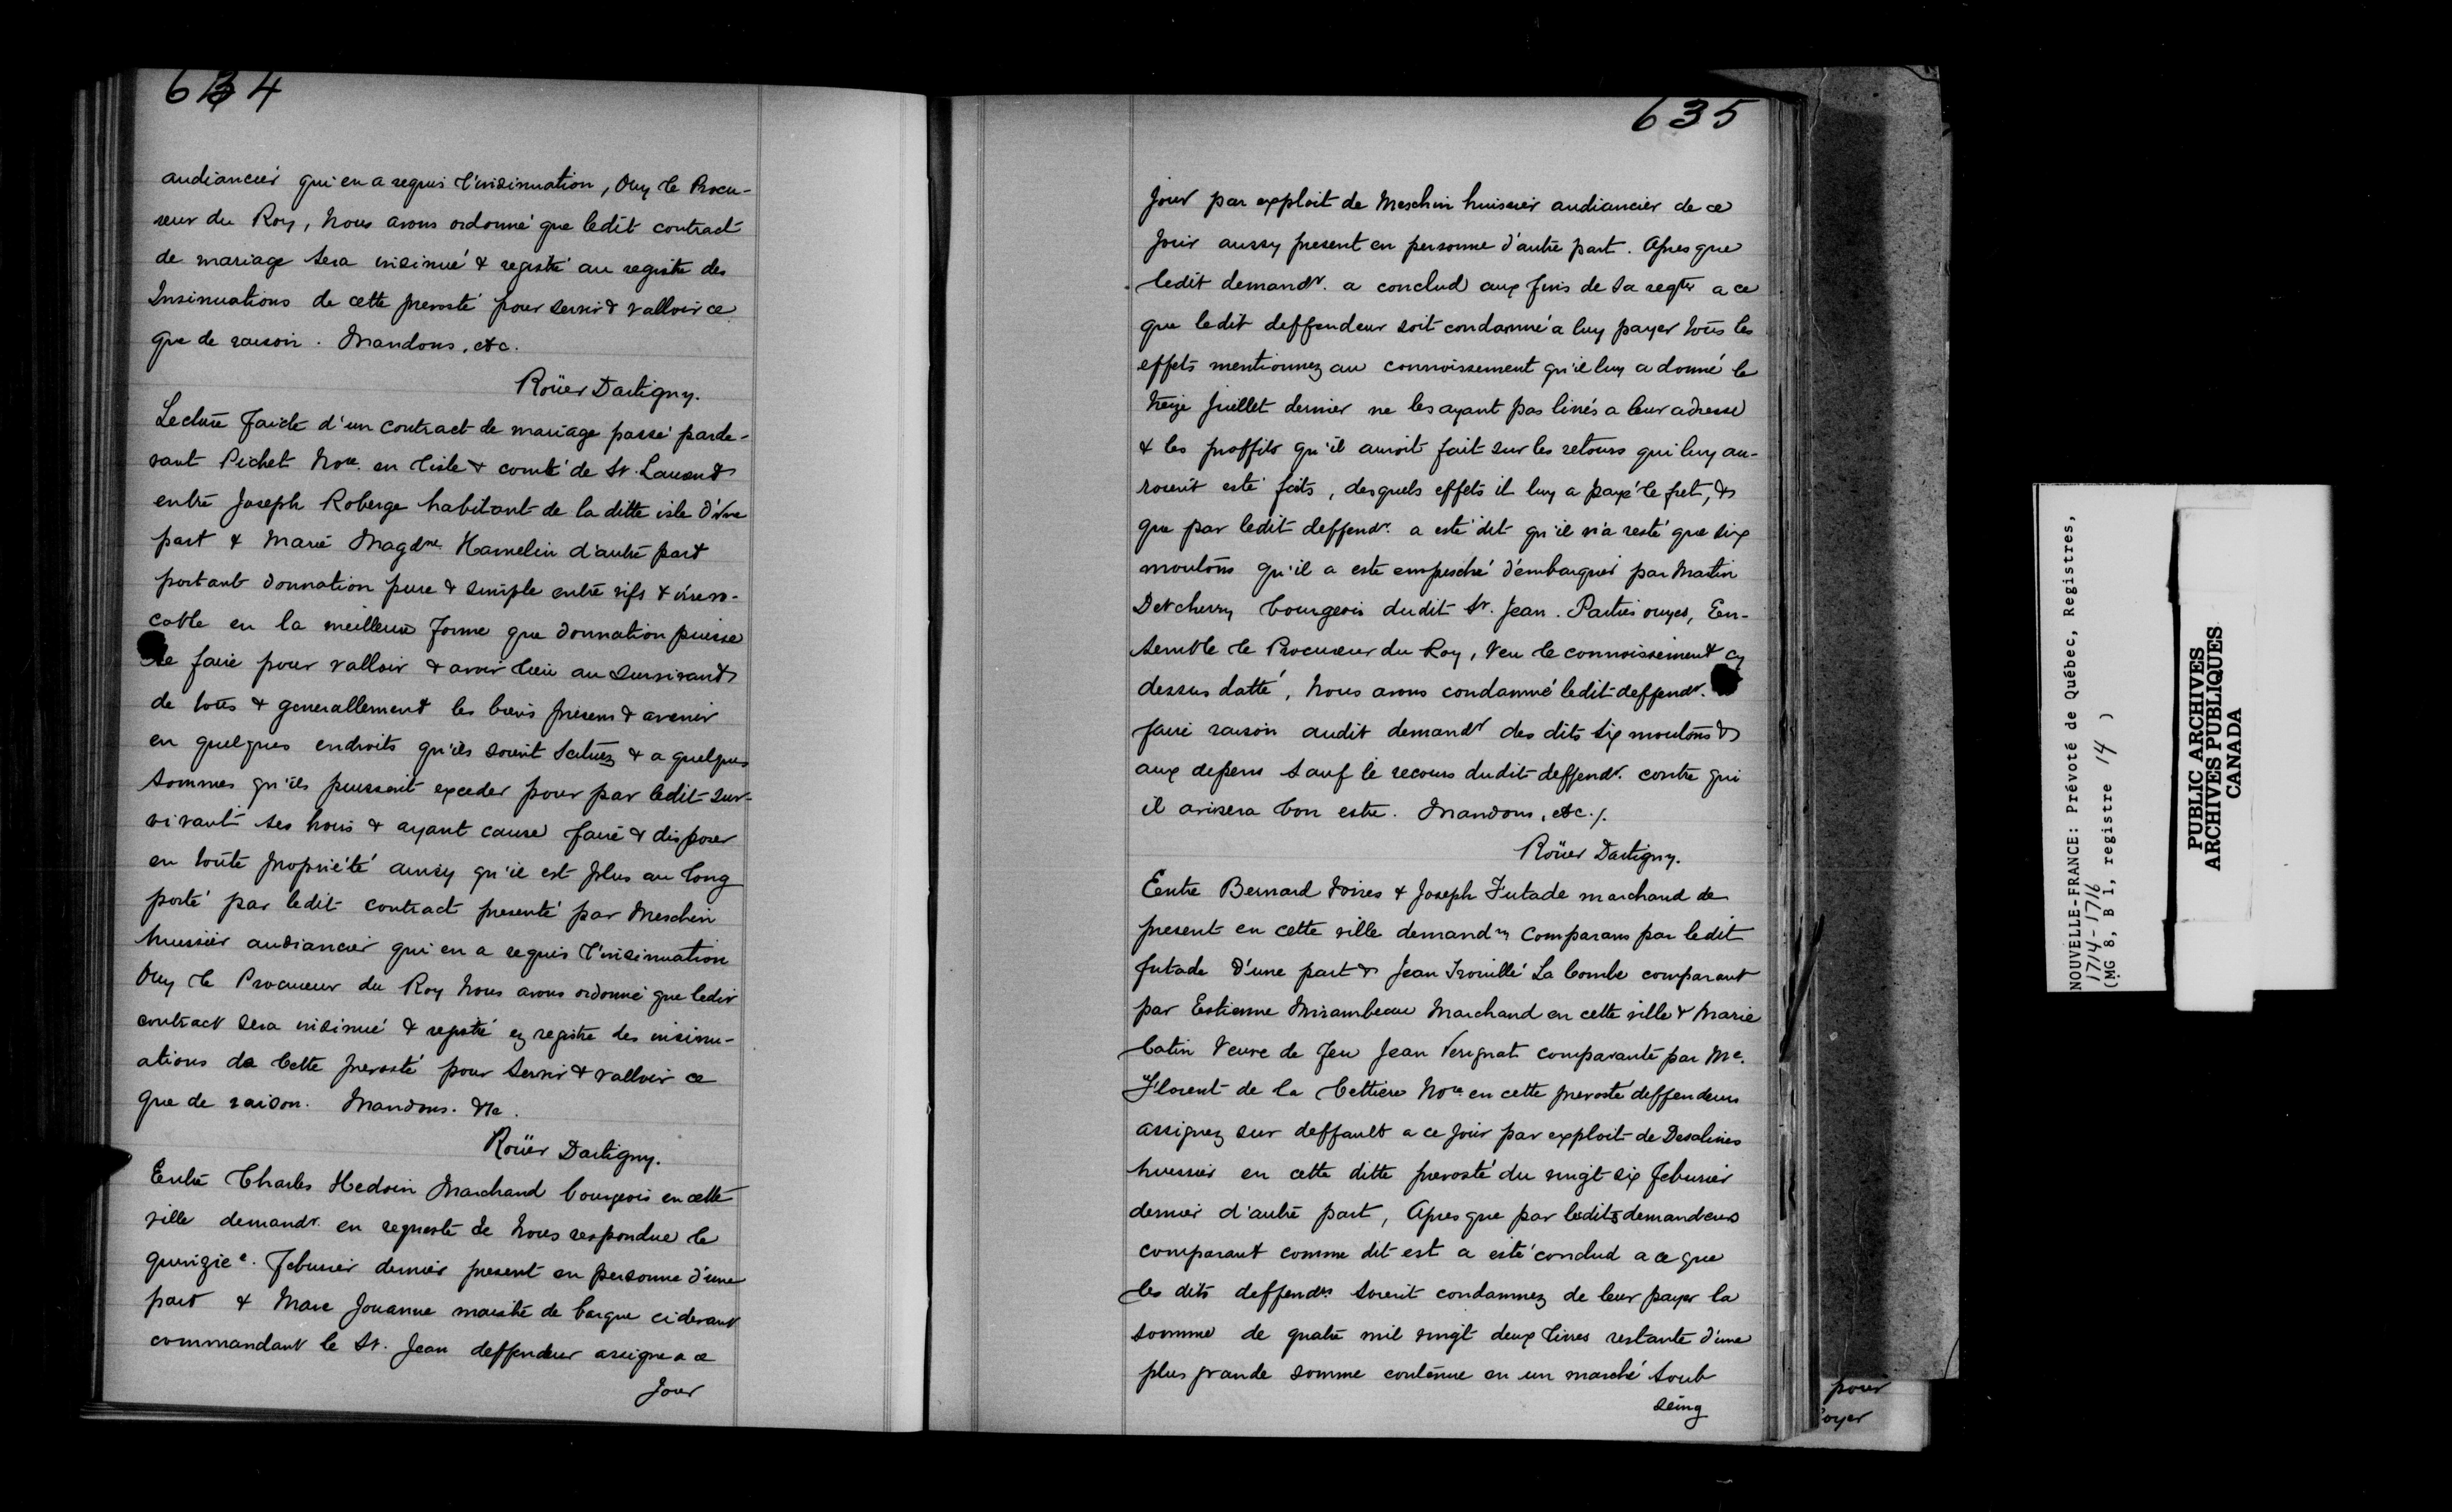 634
audiancier qui en a requis l'insinuation, Ouy le Procu-
reur du Roy, Nous avons ordonné que ledit contract
de mariage sera insinué & registé au registe des
Insinuations de cette prevosté pour servir & valloir ce
que de raison. Mandons, etc.
Roüer Dartigny.
Lecture faicte d'un contract de mariage passé parde-
vant Pichet Nore. en l'isle & comté de St. Laurent
entre Joseph Roberge habitant de la ditte isle d'une
part & Marie Magdne Hamelin d'autre part
portant donnation pure & simple entre vifs & irrevo-
cable en la meilleure forme que donnation puisse
se faire pour valloir & avoir lieu au survivant
de tous & generallement les biens presens & avenir
en quelques endroits qu'ils soient scituez & a quelques
sommes qu'ils puissent exceder pour par ledit sur-
vivant ses hoirs & ayant cause faire & disposer
en toute propriété ainsy qu'il est plus au long
porté par ledit contract presenté par Meschin
huissier audiancier qui en a requis l'insinuation
Ouy le Procureur du Roy Nous avons ordonné que ledit
contract sera insinué & registé ez registre des insinu-
ations de cette prevosté pour servir & valloir ce
que de raison. Mandons. &c.
Roüer Dartigny.
Entre Charles Hedoin Marchand bourgeois en cette
ville demandr. en requeste de Nous respondue le
quinzie. Febvrier dernier present en personne d'une
part & Marc Jouanne maistre de barque cidevant
commandant le St. Jean deffendeur assigne a ce
Jour
635
jour par exploit de Meschin huissier audiancier de ce
jour aussy present en personne d'autre part. Apres que
ledit demandr. a conclud aux fins de sa reqte a ce
que ledit deffendeur soit condamné a luy payer tous les
effets mentionnez au connoissement qu'il luy a donné le
treize Juillet dernier ne les ayant pas livrés a leur adresse
& les proffits qu'il auroit fait sur les retours qui luy au-
roient esté faits, desquels effets il luy a payé le fret, &
que par ledit deffendr. a esté dit qu'il n'a resté que six
moutons qu'il a este empesché d'embarquer par Martin
Detcherry bourgeois dudit St. Jean. Parties ouyes, En-
semble le Procureur du Roy, Veu le connoissement cy
dessus datté, Nous avons condamné ledit deffendr.
faire raison audit demandr des dits six moutons &
aux depens sauf le recours dudit deffendr. contre qui
il avisera bon estre. Mandons, etc./.
Roüer Dartigny.
Entre Bernard Voires & Joseph Futade marchand de
present en cette ville demandrs comparans par ledit
futade d'une part & Jean Trouillé La Combe comparant
par Estienne Mirambeau Marchand en cette ville & Marie
Catin Veuve de feu Jean Verignat comparante par Me.
Florent de la Cettiere Nore en cette prevosté deffendeurs
assignez sur deffault a ce jour par exploit de Desalines
huissier en cette ditte prevosté du vingt six febvrier
dernier d'autre part, Apres que par lesdits demandeurs
comparant comme dit est a esté conclud a ce que
les dits deffendrs soient condamnez de leur payer la
somme de quatre mil vingt deux livres restante d'une
plus grande somme contenue en un marché soub
seing
pour
oyer
NOUVELLE-FRANCE: Prévoté de Québec, Registres,
1714-1716
(MG 8, B 1, registre 14 )
PUBLIC ARCHIVES
ARCHIVES PUBLIQUES
CANADA